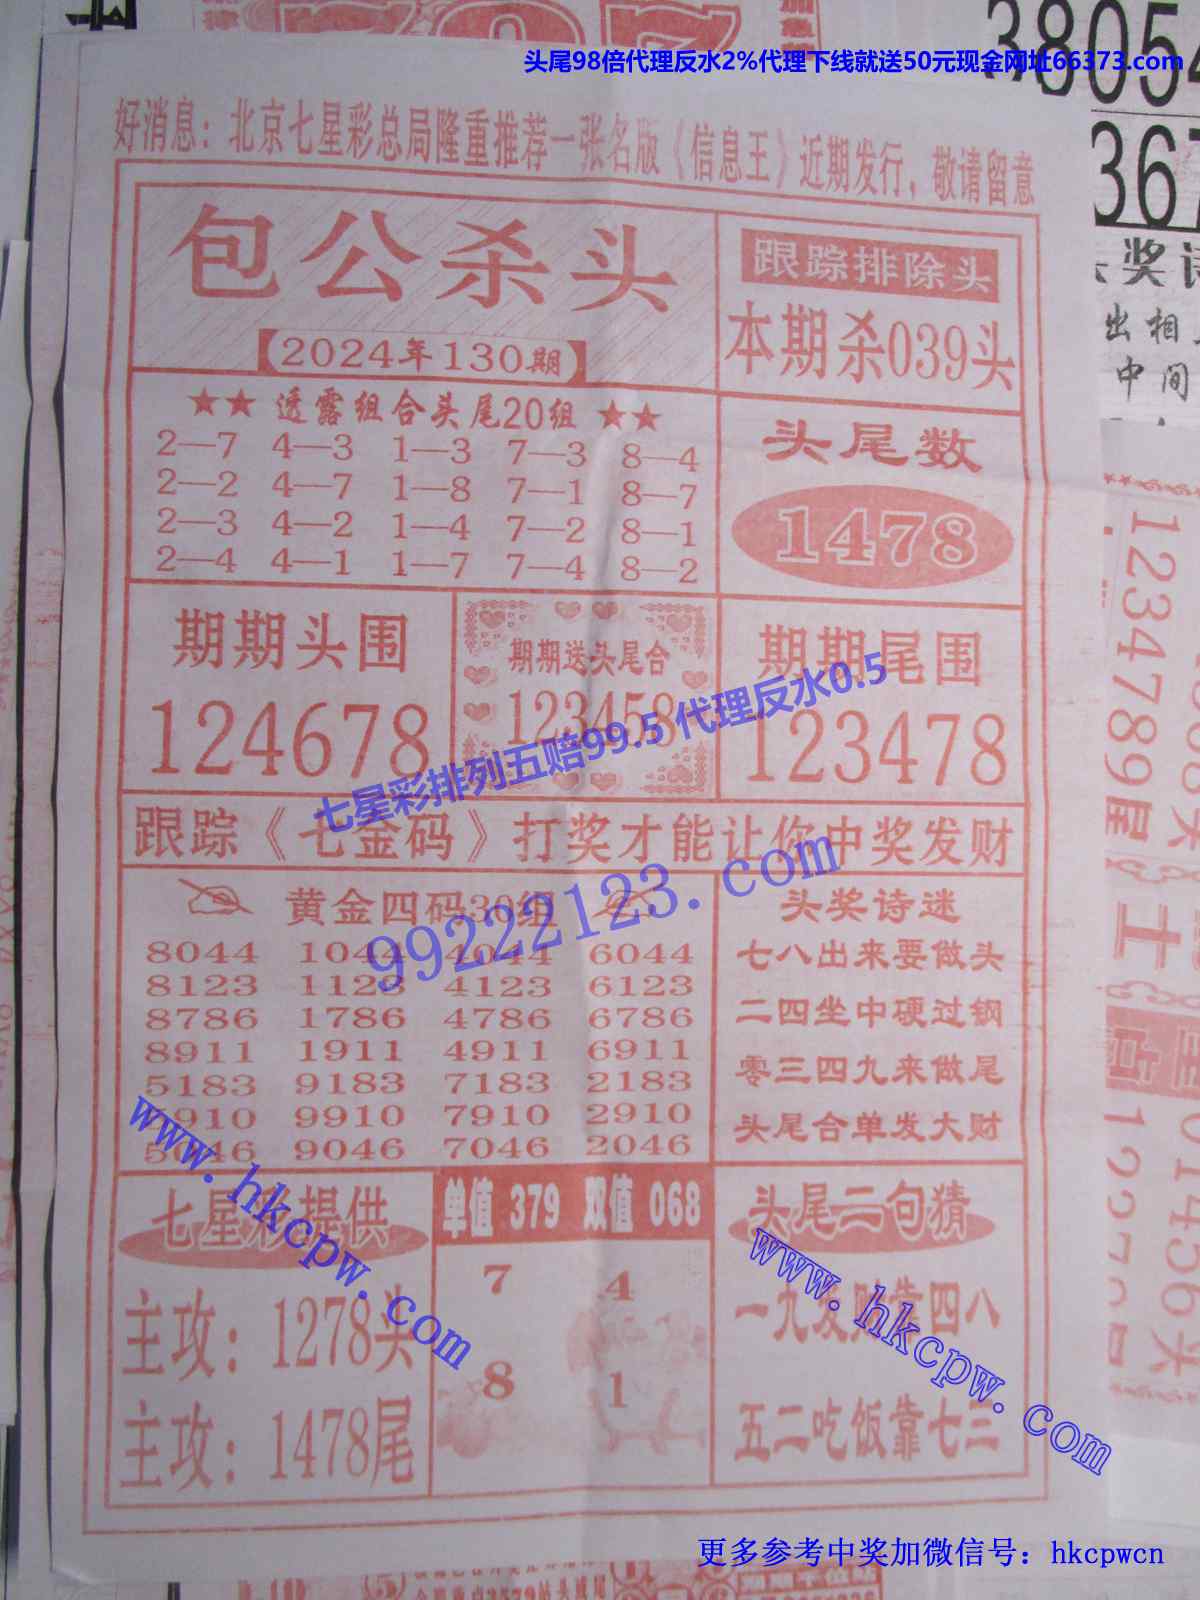 头尾98倍代理反水2%代理下线就送50元现金网址66373.com
38054
367
好消息：北京七星彩总局隆重推荐一张名版《信息王》近期发行，敬请留意
包公杀头
【2024年130期】
跟踪排除头
本期杀039头
★★ 透露组合头尾20组 ★★
2—7 4—3 1—3 7—3 8—4
2—2 4—7 1—8 7—1 8—7
2—3 4—2 1—4 7—2 8—1
2—4 4—1 1—7 7—4 8—2
头尾数
1478
期期头围
124678
期期送头尾合
123458
期期尾围
123478
七星彩排列五赔99.5 代理反水0.5
跟踪《七金码》打奖才能让你中奖发财
99222123.com
黄金四码30组
8044 1044 4044 6044
8123 1123 4123 6123
8786 1786 4786 6786
8911 1911 4911 6911
5183 9183 7183 2183
910 9910 7910 2910
5046 9046 7046 2046
头奖诗迷
七八出来要做头
二四坐中硬过钢
零三四九来做尾
头尾合单发大财
www.hkcpw.com
七星彩提供
主攻：1278头
主攻：1478尾
单值 379 双值 068
7 4
8 1
头尾二句猜
一九发财靠四八
五二吃饭靠七三
www.hkcpw.com
奖诗
出相
中间
1234789
01456头
更多参考中奖加微信号：hkcpwcn